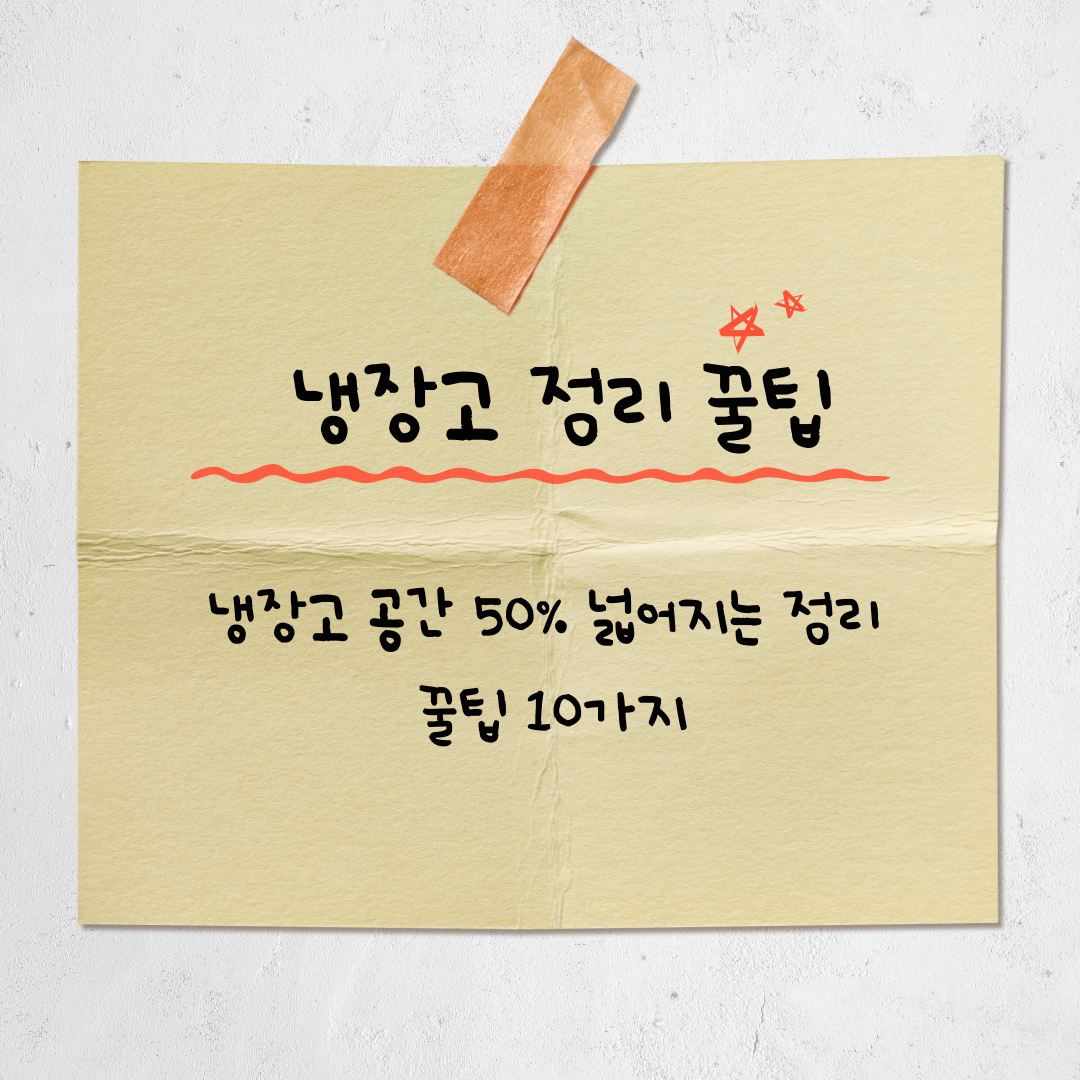 냉장고 정리 꿀팁
냉장고 공간 50% 넓어지는 정리
꿀팁 10가지